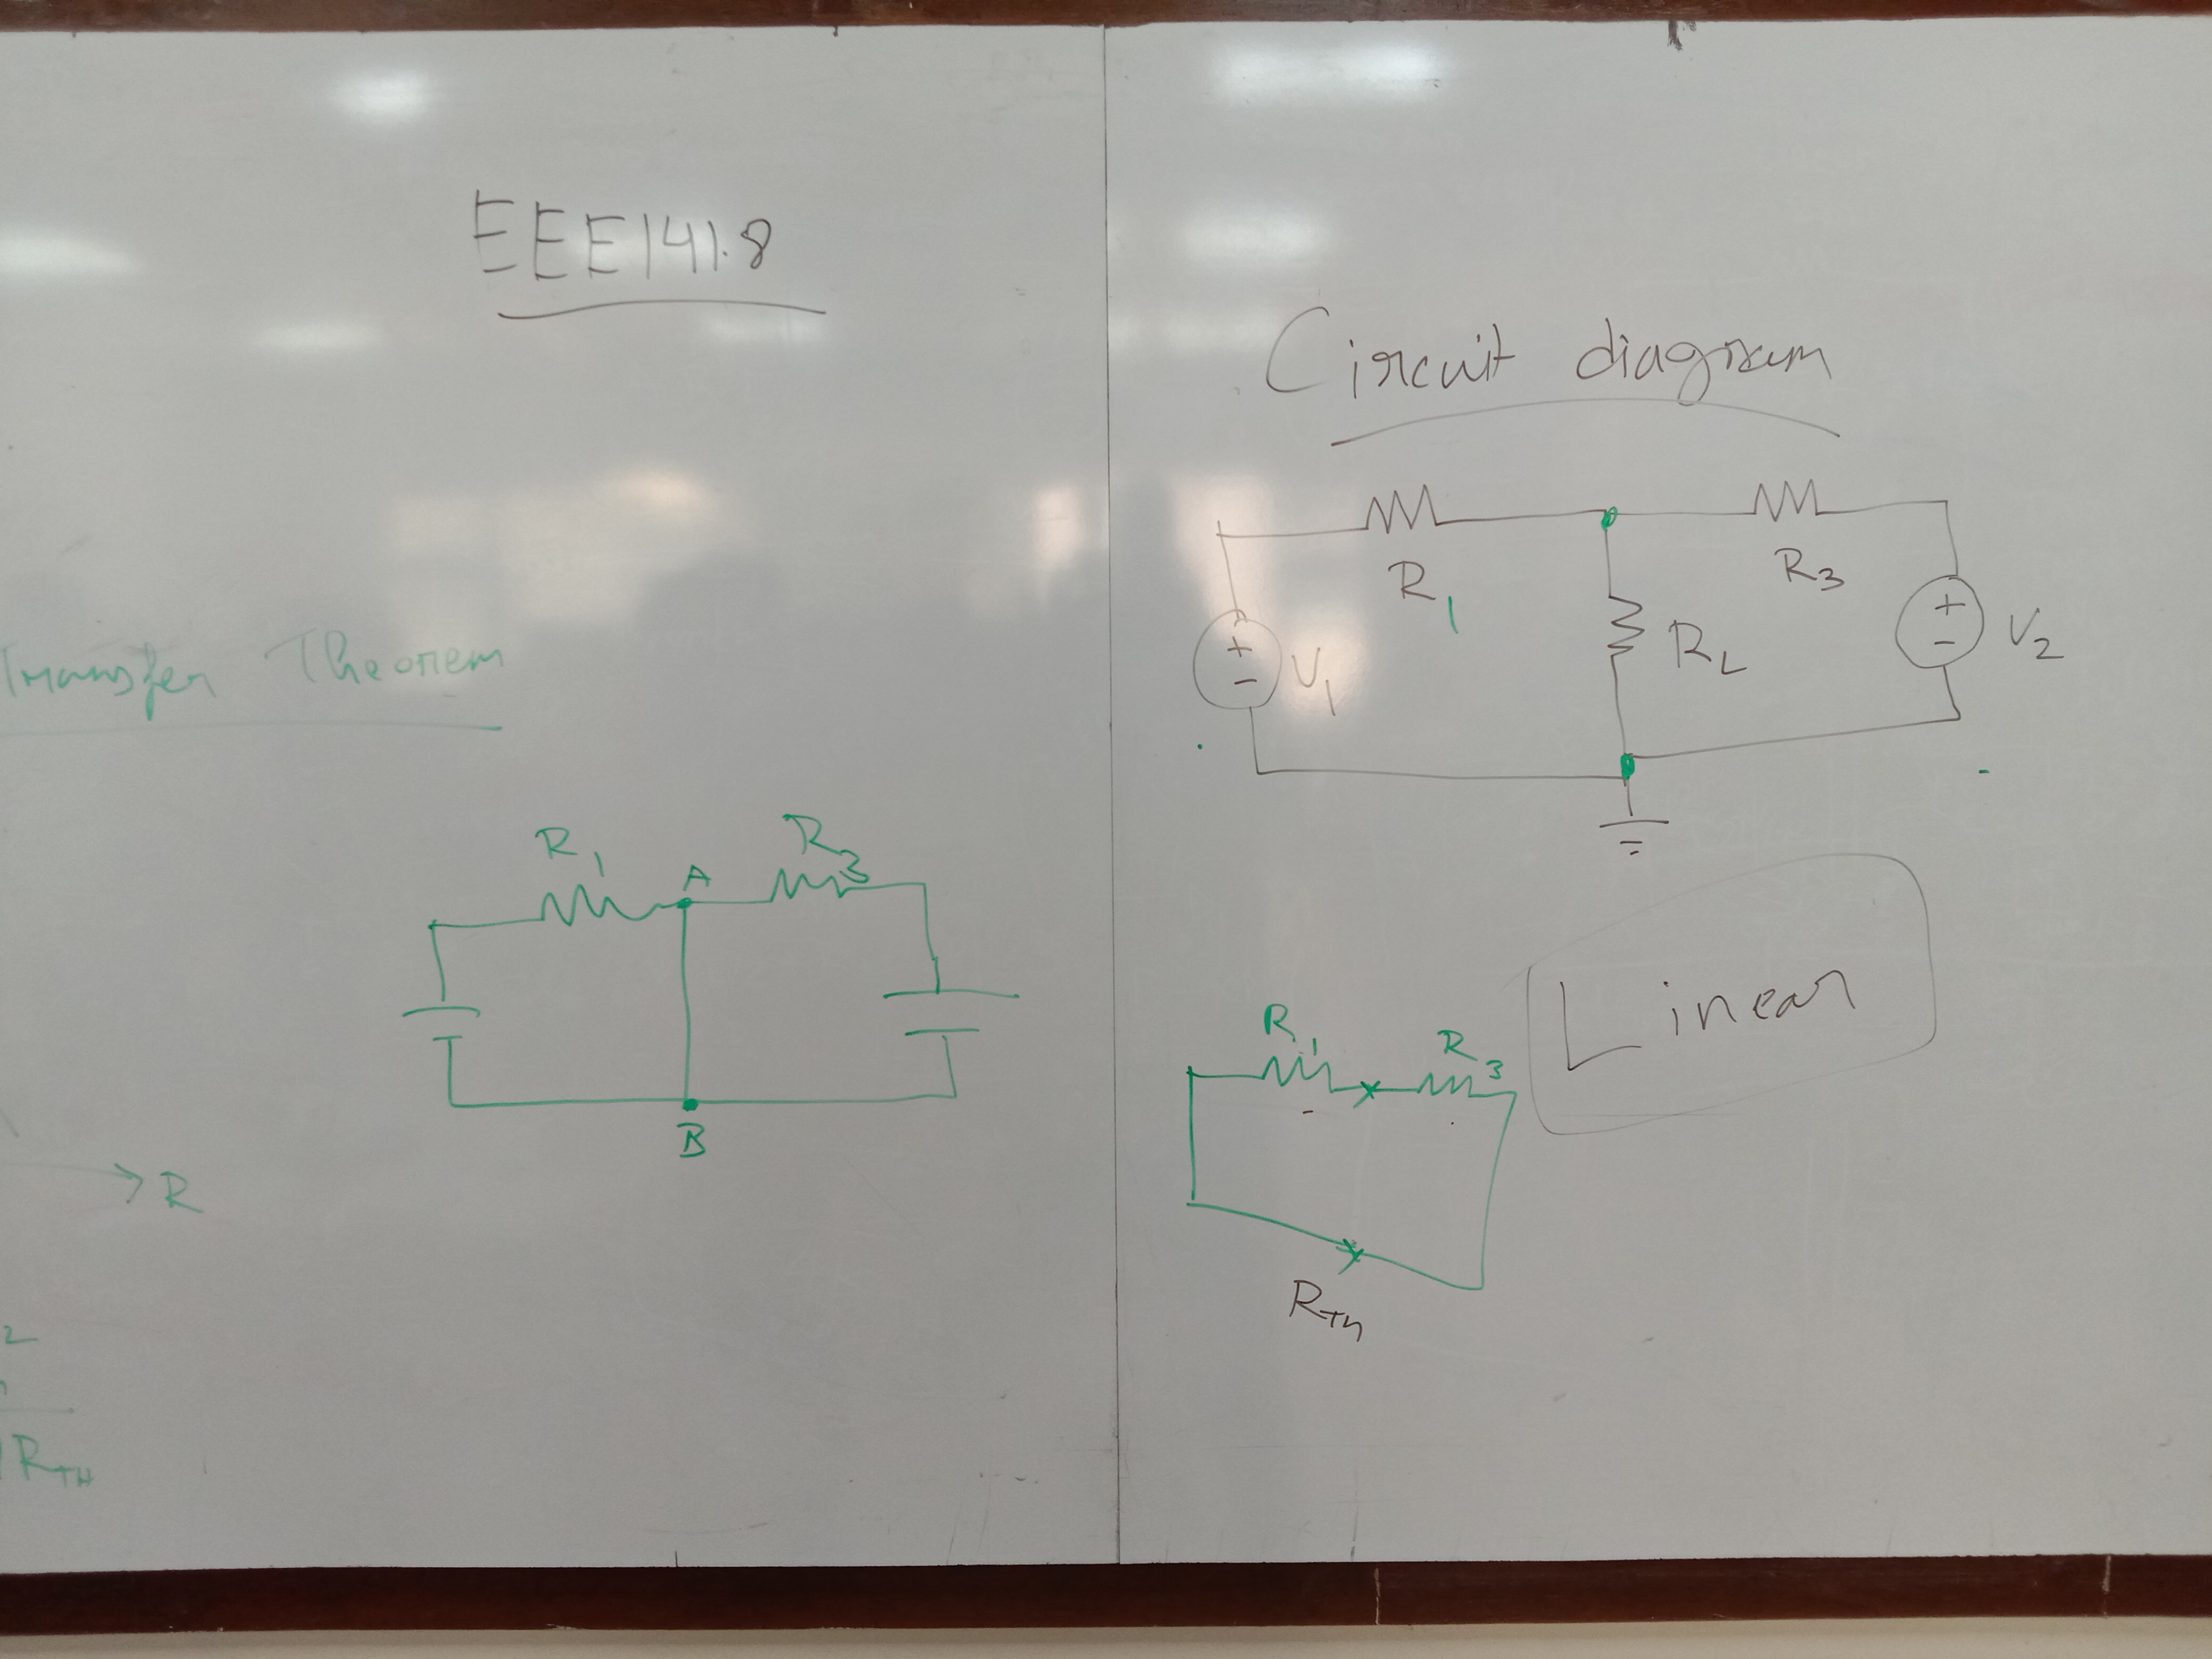 EEE141.8
Transfer Theorem
R1
R3
A
B
→R
2
RTH
Circuit diagram
R1
R3
+
-
V1
RL
+
-
V2
Linear
R1
R3
RTh